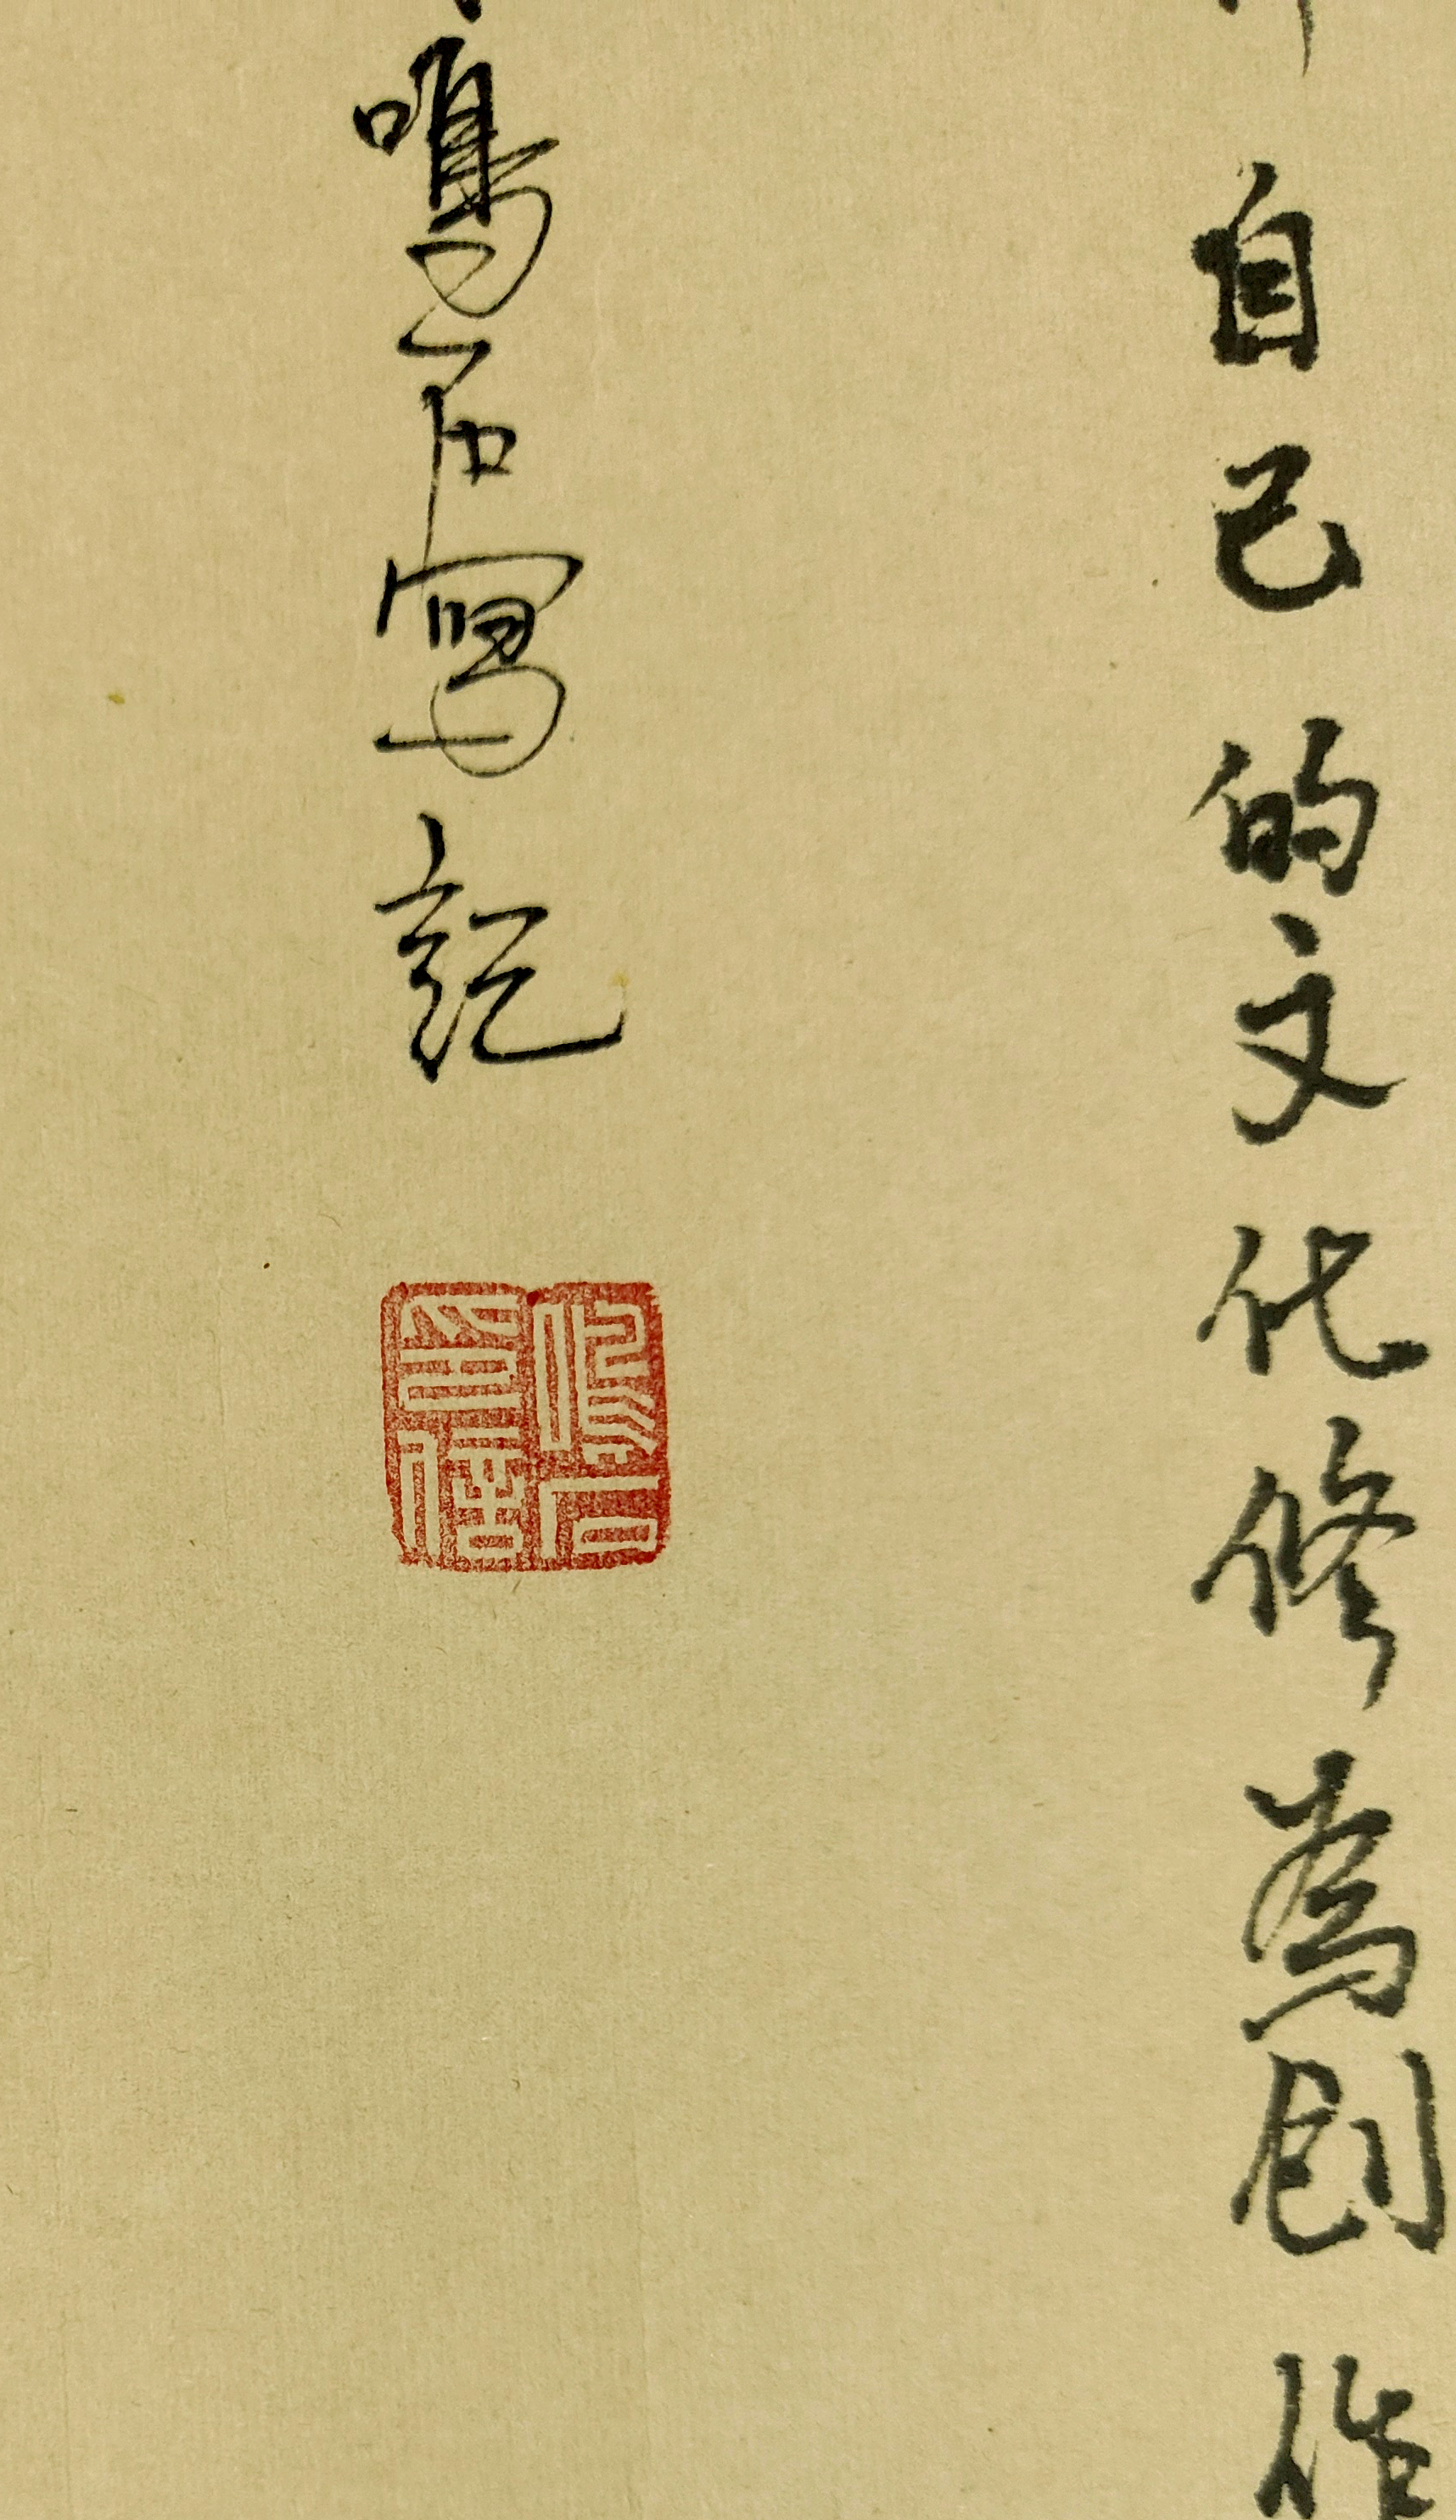 自己的文化修為創作
鳴石寫記